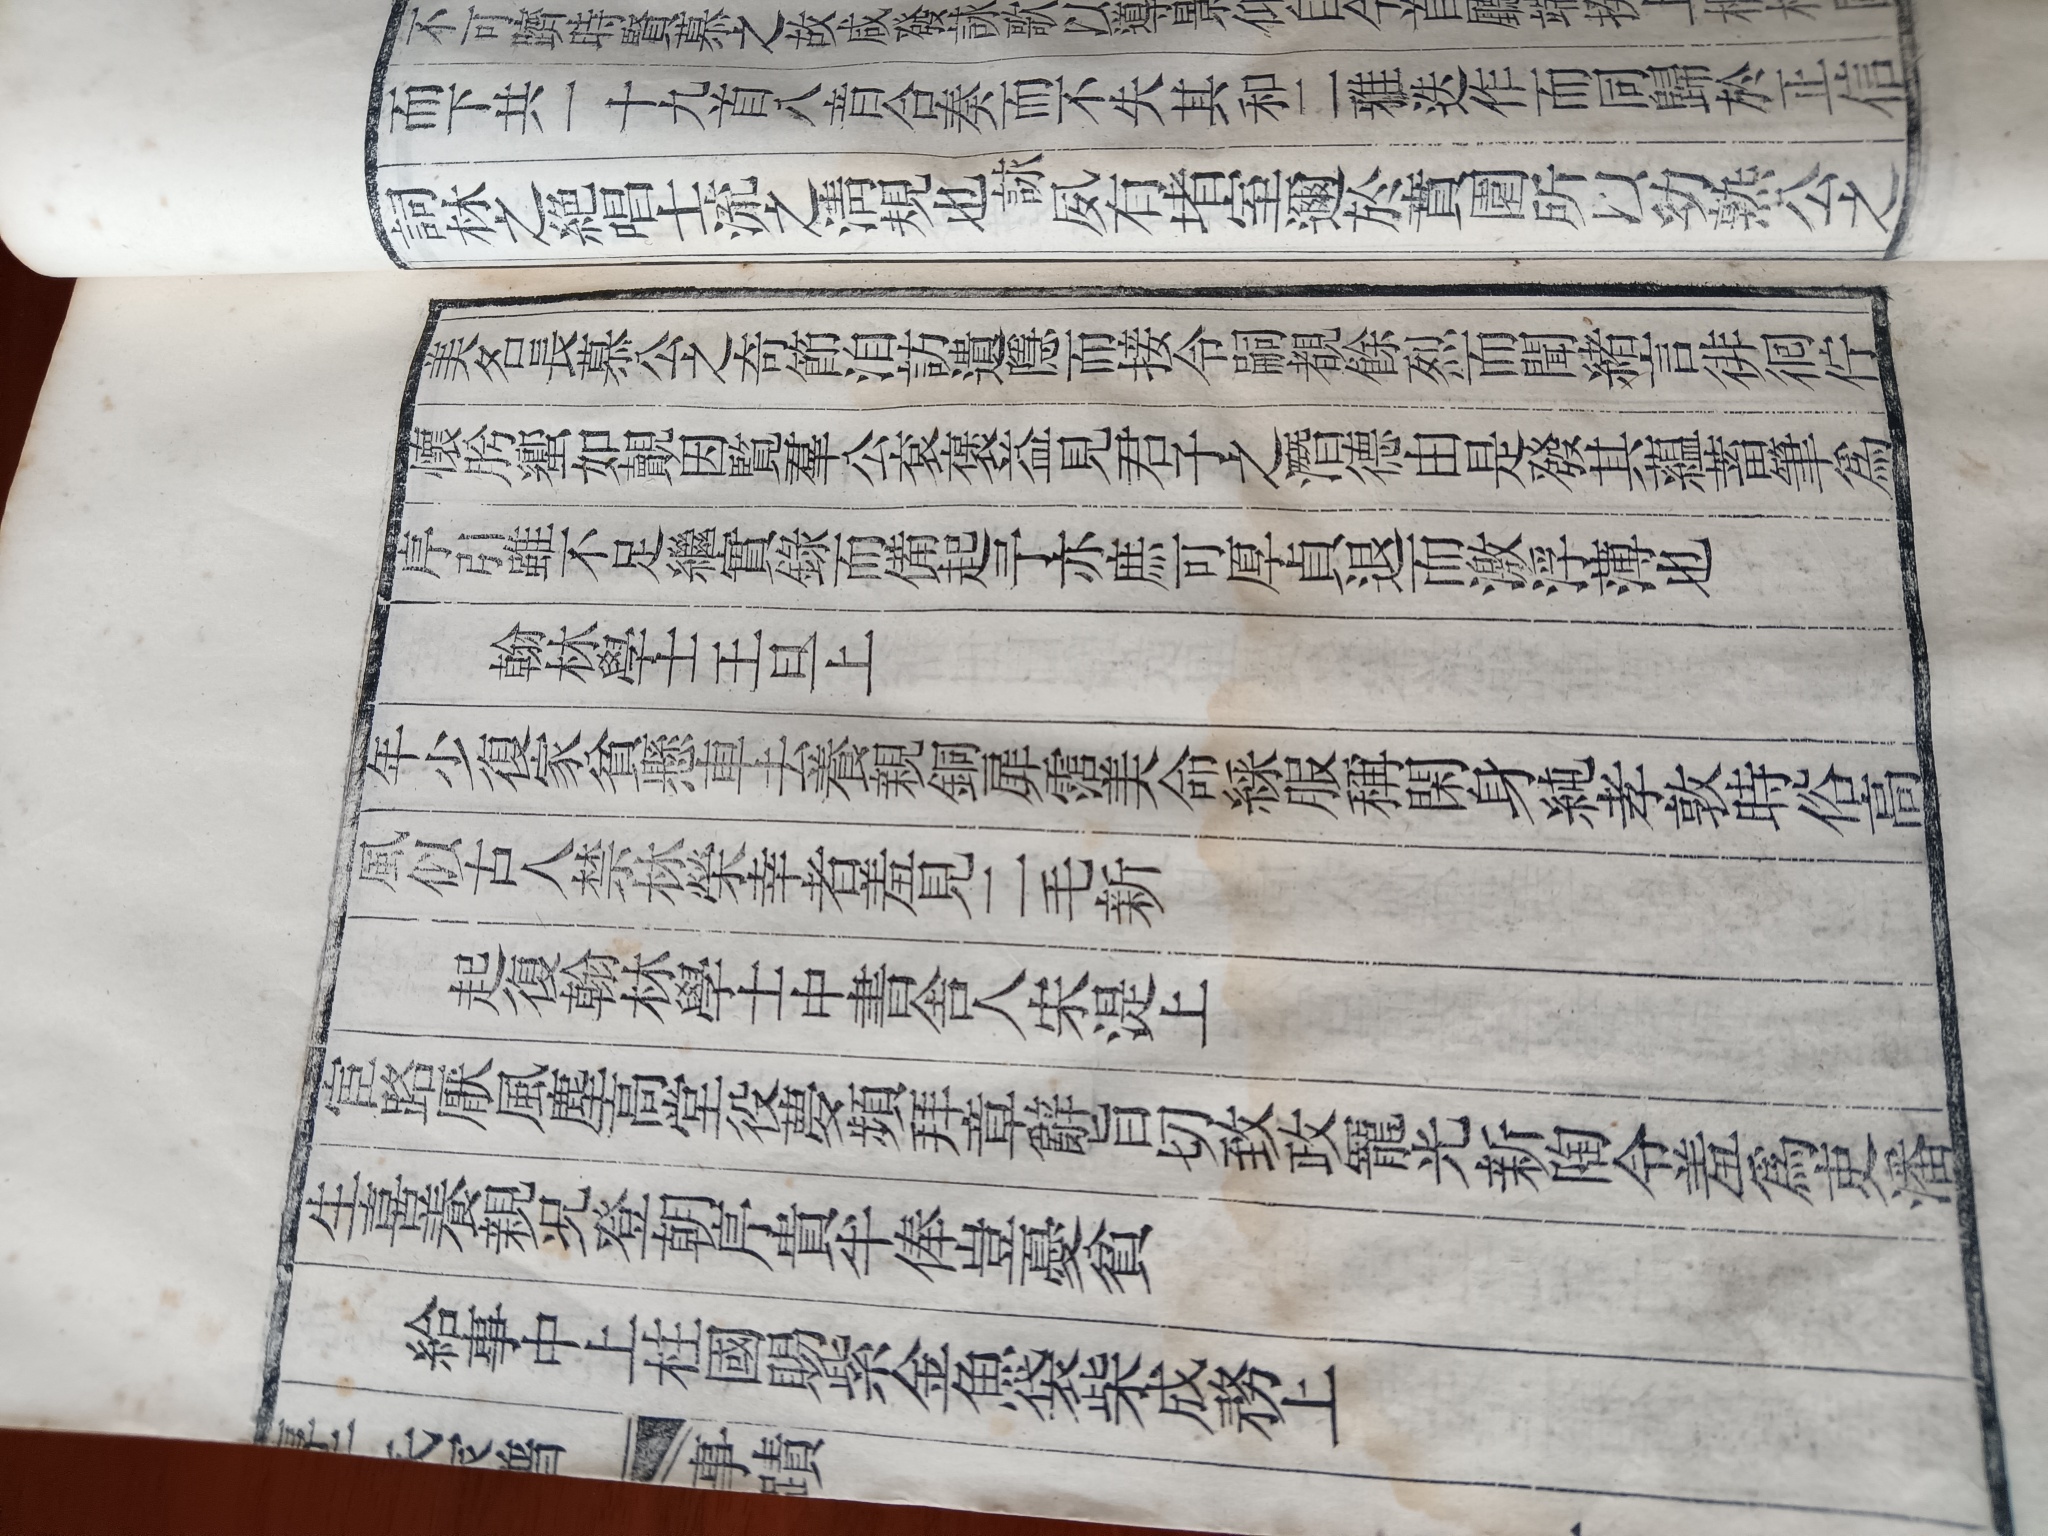 不可 時賢慕之故咸發詠歌以導
而下共一十九首八音合奏而不失其和二雅迭作而同歸於正信
詞林之絕唱士流之清規也詠 有堵室邇於賁園所以幼熟公之
美名長慕公之奇節洎訪遺隱而接令嗣覩餘烈而聞緒言徘徊佇
懷肹蠁如覿因覽羣公裒襃益見君子之潛德由是發其蘊蓄筆為
序引雖不足繼實錄而備起予亦庶可厚貞退而激浮薄也
翰林學士王旦上
年少復家貧懸車去養親銅犀霑美命綵服稱閑身純孝敦時俗高
風似古人禁林榮幸者羞見二毛新
起復翰林學士中書舍人宋湜上
宦路厭風塵高堂役夢頻拜章辭旨切致政寵光新陶令羞為吏潘
生喜養親況登朝序貴半俸豈憂貧
給事中上柱國賜紫金魚袋柴成務上
事蹟